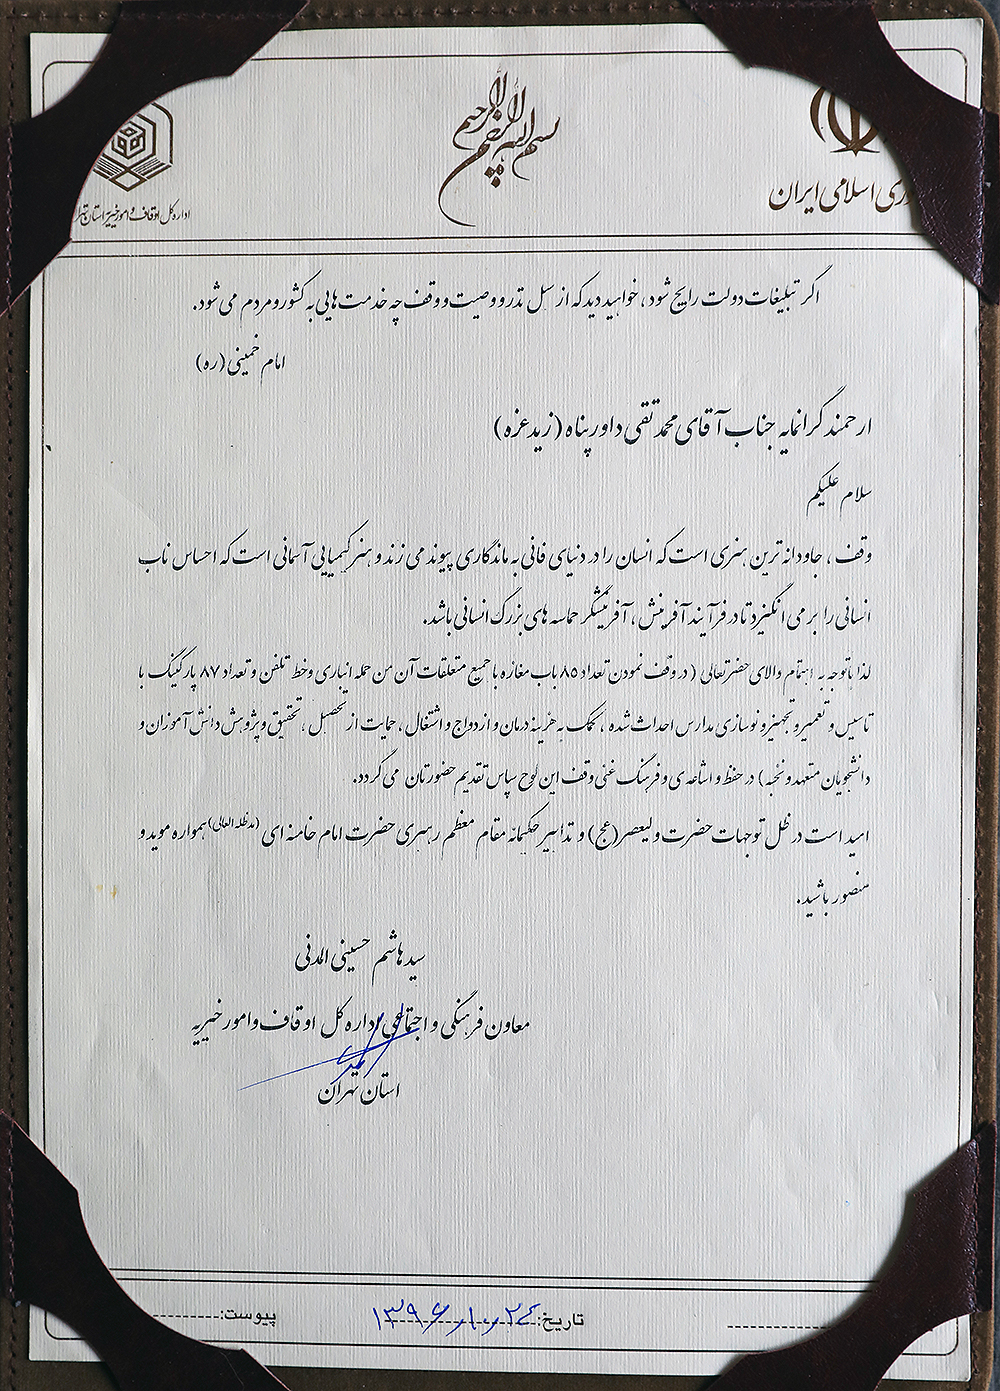 بسم الله الرحمن الرحیم
ری اسلامی ایران
اداره کل اوقاف و امور خیریه استان تهرا
اگر تبلیغات دولت رایج شود، خواهید دید که از سبل نذر و وصیت و وقف چه خدمت هایی به کشور و مردم می شود.
امام خمینی (ره)
ارجمند گرانمایه جناب آقای محمد تقی داورپناه (زیدعزه)
سلام علیکم
وقف، جاودانه ترین هنری است که انسان را در دنیای فانی به ماندگاری پیوند می زند و هنر کیمیایی آسمانی است که احساس ناب
انسانی را بر می انگیزد تا در فرآیند آفرینش، آفرینشگر حماسه های بزرگ انسانی باشد.
لذا با توجه به اهتمام والای حضرتعالی (در وقف نمودن تعداد ۸۵ باب مغازه با جمیع متعلقات آن من جمله انباری و خط تلفن و تعداد ۸۷ پارکینگ با
تاسیس و تعمیر و تجهیز و نوسازی مدارس احداث شده، کمک به هزینه درمان و ازدواج و اشتغال، حمایت از تحصیل، تحقیق و پژوهش دانش آموزان و
دانشجویان متعهد و نخبه) در حفظ و اشاعه ی و فرهنگ غنی وقف این لوح سپاس تقدیم حضورتان می گردد.
امید است در ظل توجهات حضرت ولیعصر(عج) و تدابیر حکیمانه مقام معظم رهبری حضرت امام خامنه ای (مدظله العالی) همواره موید و
منصور باشید.
سید هاشم حسینی المدنی
معاون فرهنگی و اجتماعی اداره کل اوقاف و امور خیریه
استان تهران
تاریخ: ۱۳۹۶/۱۰/۲۴
پیوست: